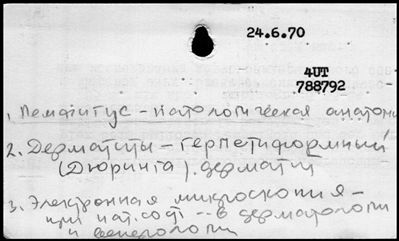 24.6.70
4UT
788792
1. Пемфигус - патологическая анатоми
2. Дерматиты - герпетиформный
(Дюринга) дерматит
3. Электронная микроскопия -
при пат. сост. - в дерматологии
и венерологии